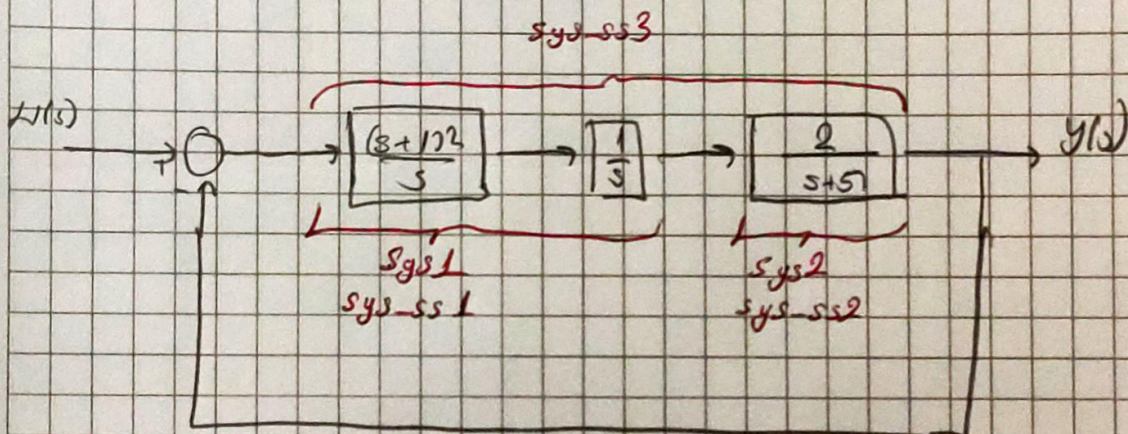 sys_ss3
U(s)
+
(s+1)2
s
1
s
2
s+5
y(s)
-
Sys1
sys_ss1
Sys2
sys_ss2